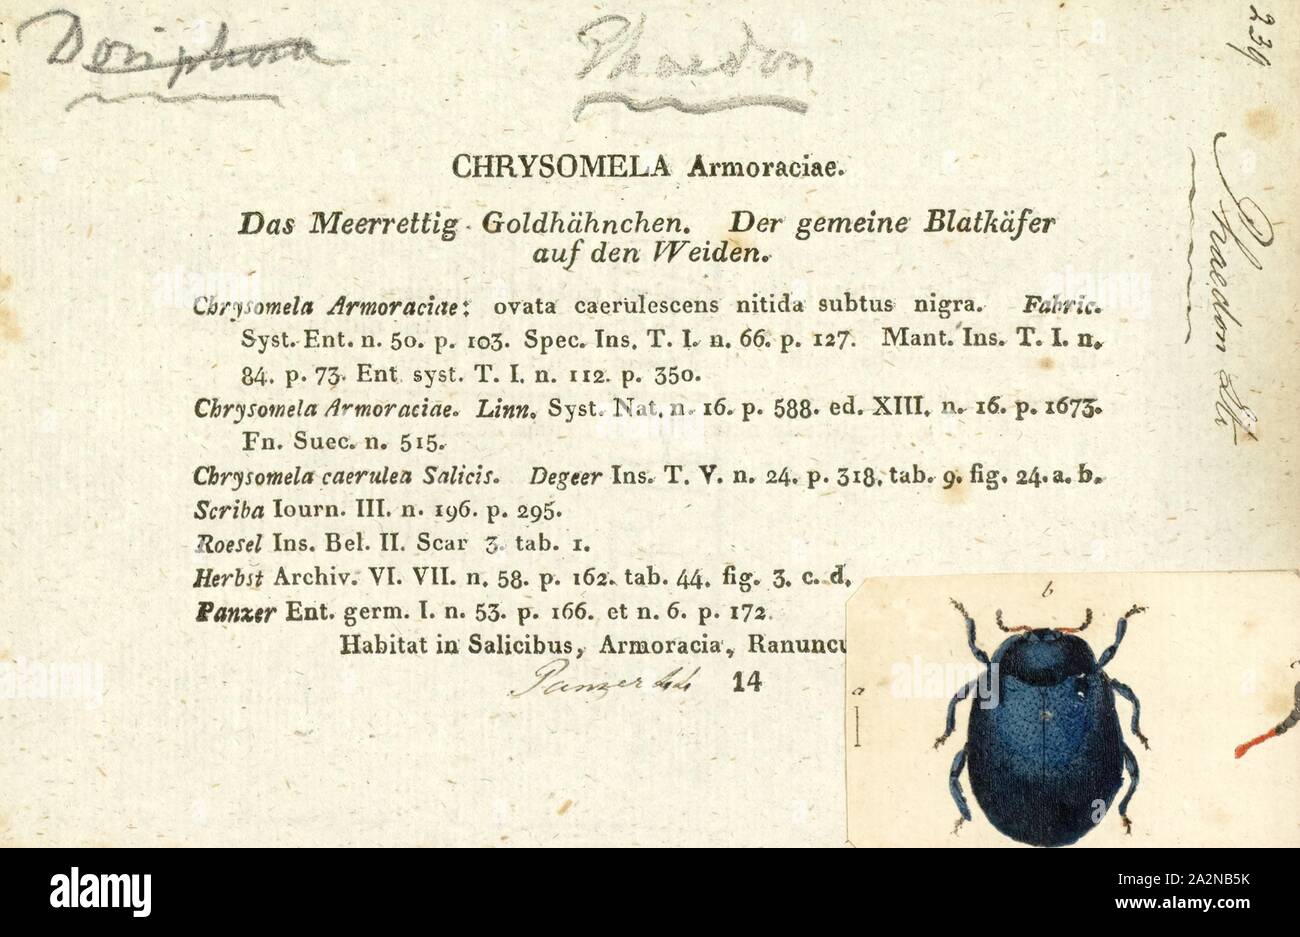 Doriphora
Phaedon
239
Phaedon
CHRYSOMELA Armoraciae.
Das Meerrettig-Goldhähnchen. Der gemeine Blatkäfer
auf den Weiden.
Chrysomela Armoraciae: ovata caerulescens nitida subtus nigra. Fabric.
Syst. Ent. n. 50. p. 103. Spec. Ins. T. I. n. 66. p. 127. Mant. Ins. T. I. n.
84. p. 73. Ent. syst. T. I. n. 112. p. 350.
Chrysomela Armoraciae. Linn. Syst. Nat. n. 16. p. 588. ed. XIII. n. 16. p. 1673.
Fn. Suec. n. 515.
Chrysomela caerulea Salicis. Degeer Ins. T. V. n. 24. p. 318. tab. 9. fig. 24. a. b.
Scriba Iourn. III. n. 196. p. 295.
Roesel Ins. Bel. II. Scar 3. tab. 1.
Herbst Archiv. VI. VII. n. 58. p. 162. tab. 44. fig. 3. c. d.
Panzer Ent. germ. I. n. 53. p. 166. et n. 6. p. 172.
Habitat in Salicibus, Armoracia, Ranuncu
Panzer 44 14
b
a
c
alamy
Image ID: A2NB5K
www.alamy.com